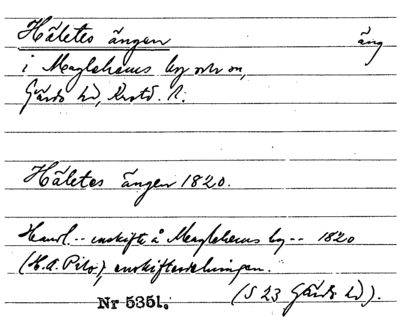 Håletes ängen äng
i Maglehems by och sn,
Gärds hd, Krstd. l.
Håletes ängen 1820.
Handl. -- enskifte å Maglehems by -- 1820
(H.A. Pilo), enskiftesdelningen.
Nr 5351. (S 23 Gärds hd).